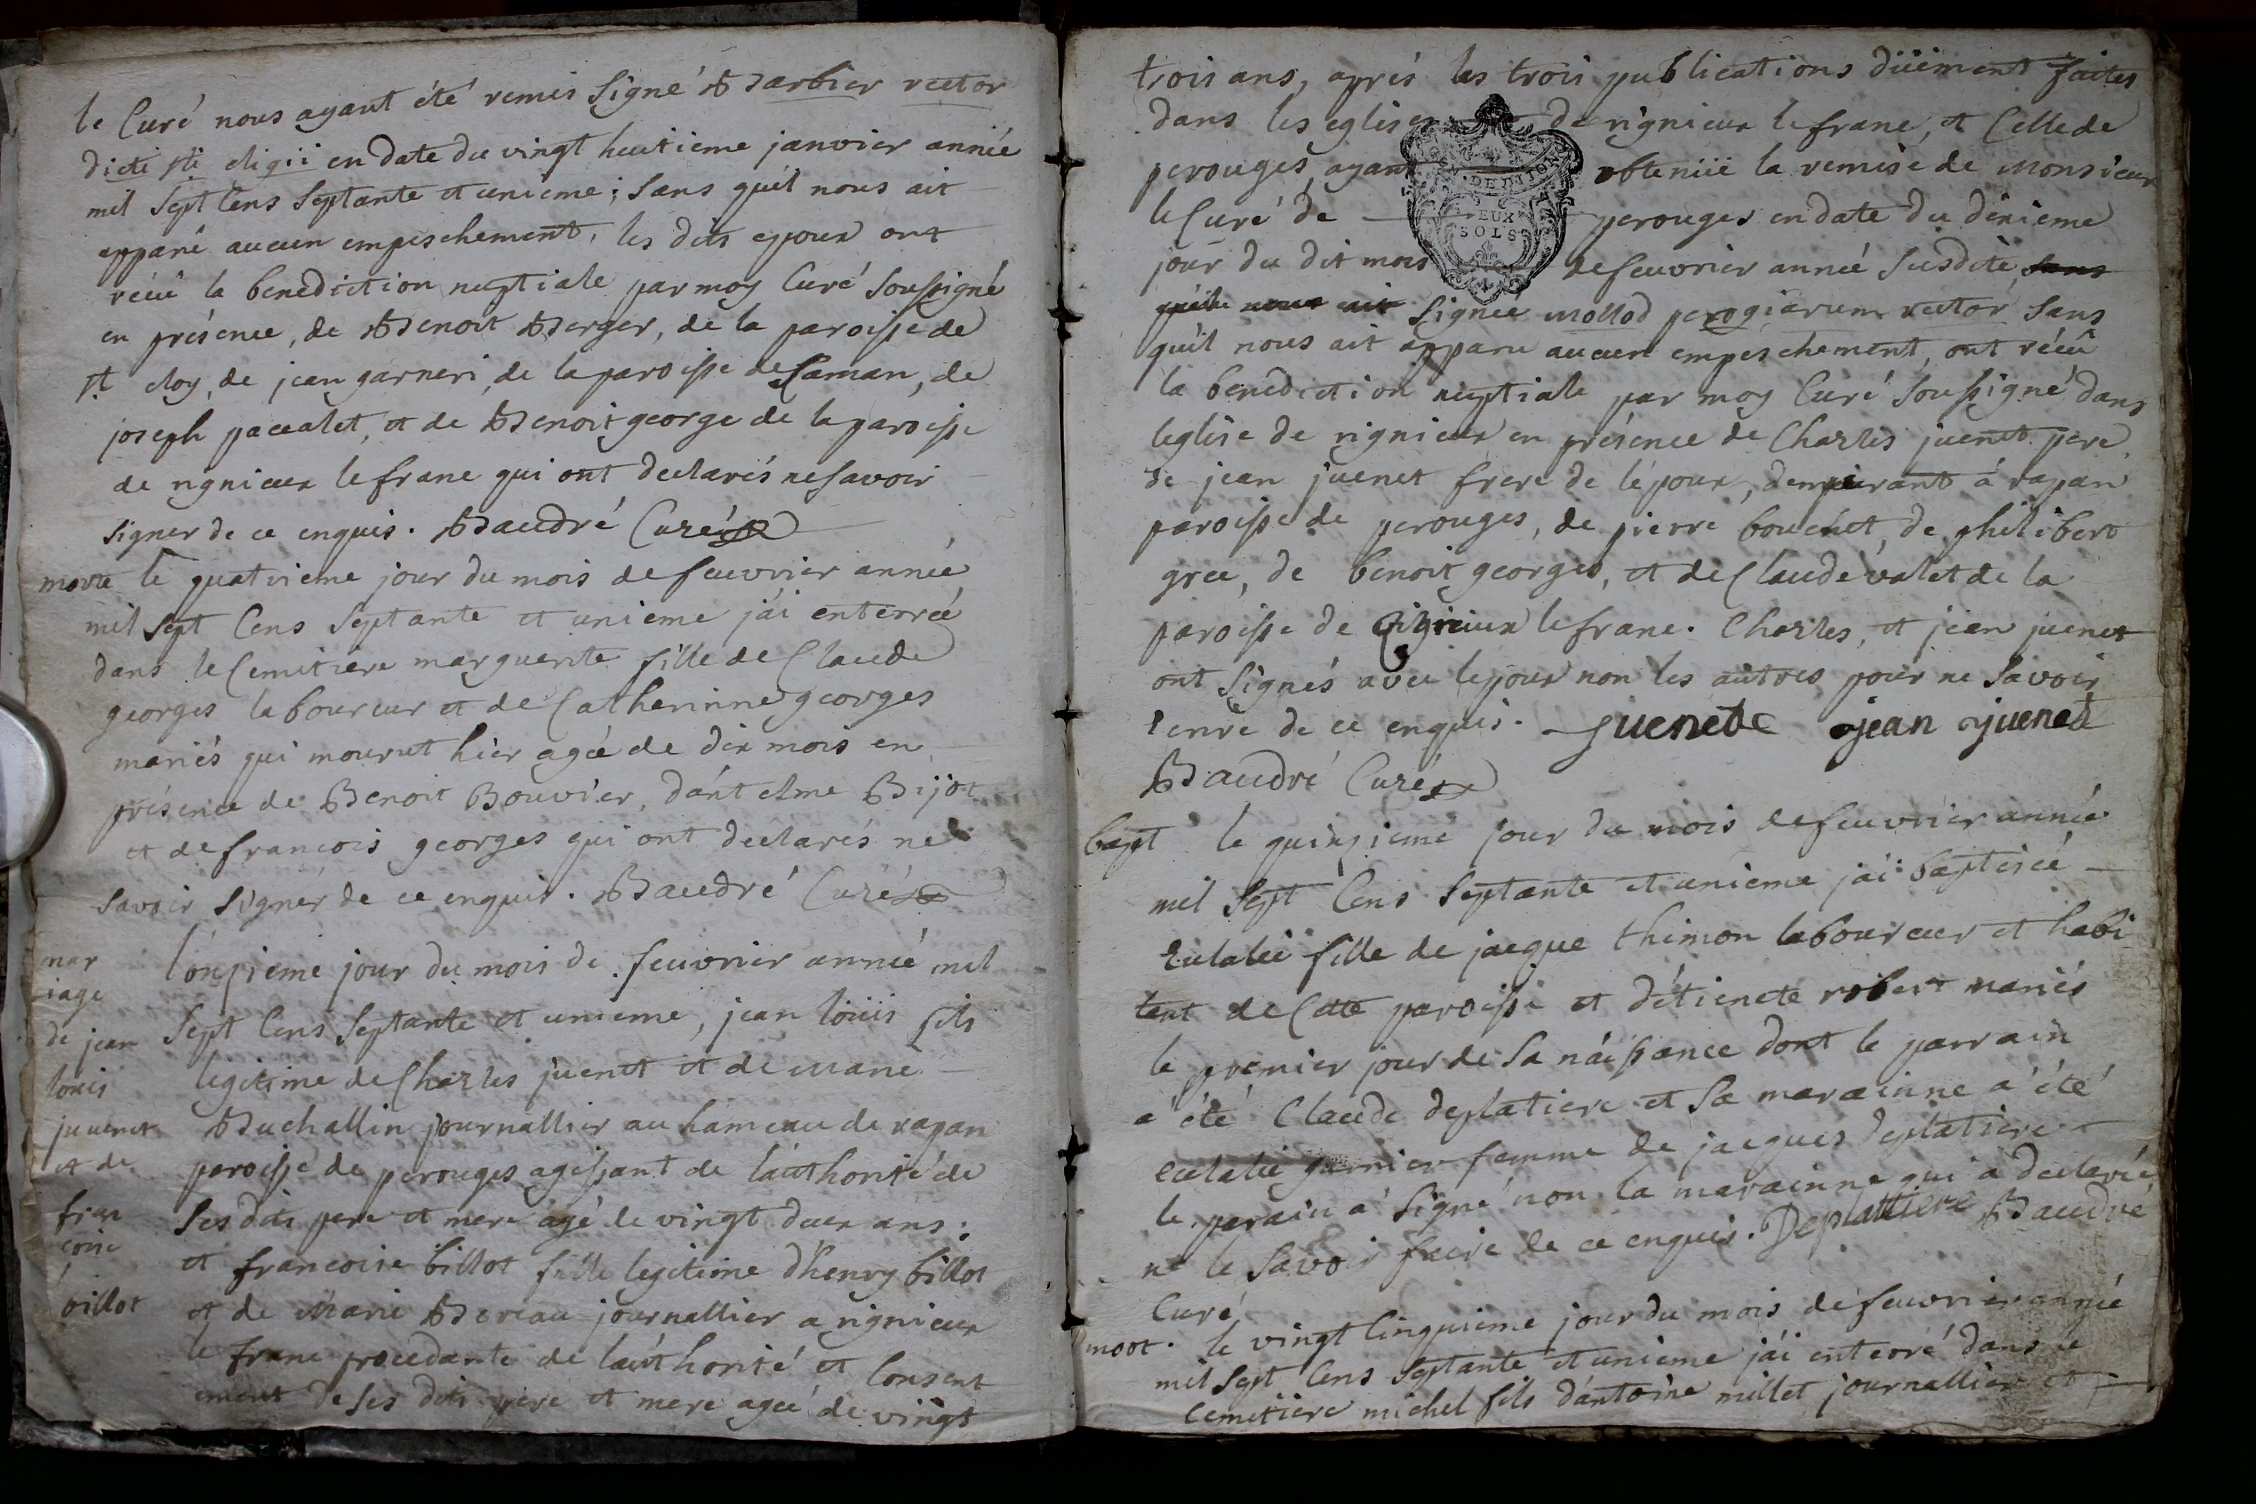 le Curé nous ayant été remis signé Barbier rector
dicti sti eligii en date du vingt heutieme janvier année
mil sept Cens septante et unieme ; sans quil nous ait
apparû aucun empeschement, les dits epoux ont
récuë la benediction nuptiale par moy Curé soussigné
en présence, de Benoit Berger, de la paroisse de
st eloy, de jean garneri, de la paroisse de Saman, de
joseph pacealet, et de Benoit george de la paroisse
de rignieux le franc qui ont declarés ne savoir
signer de ce enquis. Baudré Curé
morte le quatrieme jour du mois de feuvrier année
mil sept Cens septante et unieme j'ái enterrée
dans le Cemitiere marguerite fille de Claude
georges laboureur et de Catherinne georges
mariés qui mourut hier agée de dix mois en
présence de Benoit Bouvier, dántelme Bijot
et de francois georges qui ont declarés ne
savoir signér de ce enquis. Baudré Curé
mar
iage
de jean
louis
juuenet
et de
fran
coise
billot
l'onzieme jour du mois de feuvrier année mil
sept Cens septante et unieme, jean loüis fils
legitime de Charles juenet et de marie
Buchallin journallier au hameau de rapan
paroisse de perouges agissant de l'aüthorité de
ses dits pere et mere agé de vingt deux ans ;
et francoise billot fille legitime d'henry billot
et de Marie Bereau journallier a rignieux
le franc procedante de l'aüthorité et Consent
ement de ses dits pere et mere agée de vingt
trois ans, aprés les trois publications düëment faites
dans les eglises de rignieux le franc, et Celle de
perouges, ayant obtenüe la remise de Monsieur
le Curé de perouges en date du dixieme
jour du dit mois de feuvrier année susdite sans
quil nous ait signée mollod perogiarum rector sans
quil nous ait apparu aucun empeschement, ont récuë
la benediction nuptiale par moy Curé soussigné dans
leglise de rignieux en présence de Charles juenet pere,
de jean juenet frere de lépoux, demeurant á rapan
paroisse de perouges, de pierre bouchet, de philibert
gree, de benoit georges, et de Claude valet de la
paroisse de Rignieux le franc. Charles, et jean juenet
ont signés avec lepoux non les autres pour ne savoir
lenre de ce enquis. juenet jean juenet
Baudré Curé
bapt le quinzieme jour du mois de feuvrier année
mil sept Cens septante et unieme j'ái baptisée
Eulalie fille de jacque thimon laboureur et habi
tant de Cette paroisse et d'étienete robert mariés
le premier jour de sa náissance dont le parrain
a été Claude deplatiere et sa marainne a été
eulalie garnier femme de jacques deplatiere
le parain a signé non la marainne qui a declarée
ne le savoir faire de ce enquis. Deplattiere Baudré
Curé
mort. le vingt Cinquieme jour du mois de feuvrier année
mil sept Cens septante et unieme j'ái enterré dans le
Cemitiere michel fils d'antoine millet journallier et
DE DIJON
DEUX
SOLS